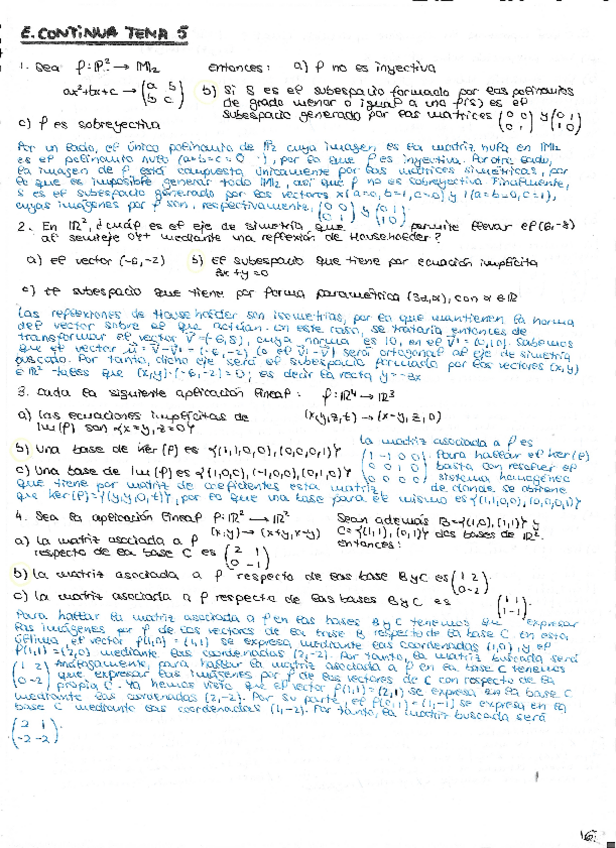 E. CONTINUA TEMA 5
1. Sea f: P² → M2 entonces: a) f no es inyectiva
ax²+bx+c → (a b; b c) b) Si S es el subespacio formado por los polinomios de grado menor o igual a uno f(S) es el subespacio generado por las matrices (0 0; 0 1) y (0 1; 1 0)
c) f es sobreyectiva
Por un lado, el único polinomio de P2 cuya imagen es la matriz nula en M2
es el polinomio nulo (a=b=c=0), por lo que f es inyectiva. Por otro lado,
la imagen de f está compuesta únicamente por las matrices simétricas, por
lo que es imposible generar todo M2, así que f no es sobreyectiva. Finalmente,
S es el subespacio generado por los vectores x(a=0, b=1, c=0) y 1(a=b=0, c=1),
cuyas imágenes por f son, respectivamente, (0 0; 0 1) y (0 1; 1 0)
2. En R², ¿cuál es el eje de simetría que permite llevar el (6,-8)
al semieje OY+ mediante una reflexión de Householder?
a) el vector (-6,-2) b) el subespacio que tiene por ecuación implícita
3x+y=0
c) el subespacio que tiene por forma paramétrica (3α,α), con α∈R
Las reflexiones de Householder son isometrías, por lo que mantienen la norma
del vector sobre el que actúan. En este caso, se trataría entonces de
transformar el vector v (6,8), cuya norma es 10, en el v'=(0,10). Sabemos
que el vector u=v'-v=(-6,-2) (o el v-v') será ortogonal al eje de simetría
buscado. Por tanto, dicho eje será el subespacio formado por los vectores (x,y)
∈R² tales que (x,y)·(-6,-2)=0; es decir la recta y=-3x
3. Dada la siguiente aplicación lineal: f: R⁴ → R³
a) las ecuaciones implícitas de (x,y,z,t) → (x-y, z, 0)
Im(f) son {x=y, z=0}
b) Una base de Ker(f) es {(1,1,0,0), (0,0,0,1)}
c) Una base de Im(f) es {(1,0,0), (-1,0,0), (0,1,0)}
La matriz asociada a f es
(1 -1 0 0; 0 0 1 0; 0 0 0 0). Para hallar el Ker(f)
basta con resolver el
sistema homogéneo
que tiene por matriz de coeficientes esta matriz, de donde se obtiene
que Ker(f)={(y,y,0,t)}, por lo que una base para el mismo es {(1,1,0,0), (0,0,0,1)}
4. Sea la aplicación lineal f: R² → R² Sean además B={(1,0), (1,1)} y
(x,y) → (x+y, x-y) C={(1,1), (0,1)} dos bases de R².
entonces:
a) La matriz asociada a f
respecto de la base C es (2 1; 0 -1)
b) la matriz asociada a f respecto de las base B y C es (1 2; 0 -2)
c) la matriz asociada a f respecto de las bases B y C es (1 1; 1 -1).
Para hallar la matriz asociada a f en las bases B y C tenemos que expresar
las imágenes por f de los vectores de la base B respecto de la base C. En esta
última el vector f(1,0)=(1,1) se expresa mediante las coordenadas (1,0), y el
f(1,1)=(2,0) mediante las coordenadas (2,-2). Por tanto, la matriz buscada será
(1 2; 0 -2). Análogamente, para hallar la matriz asociada a f en la base C tenemos
que expresar las imágenes por f de los vectores de C con respecto de la
propia C. Ya hemos visto que el vector f(1,1)=(2,1) se expresa en la base C
mediante las coordenadas (2,-2). Por su parte, el f(0,1)=(1,-1) se expresa en la
base C mediante las coordenadas (1,-2). Por tanto, la matriz buscada será
(2 1; -2 -2).